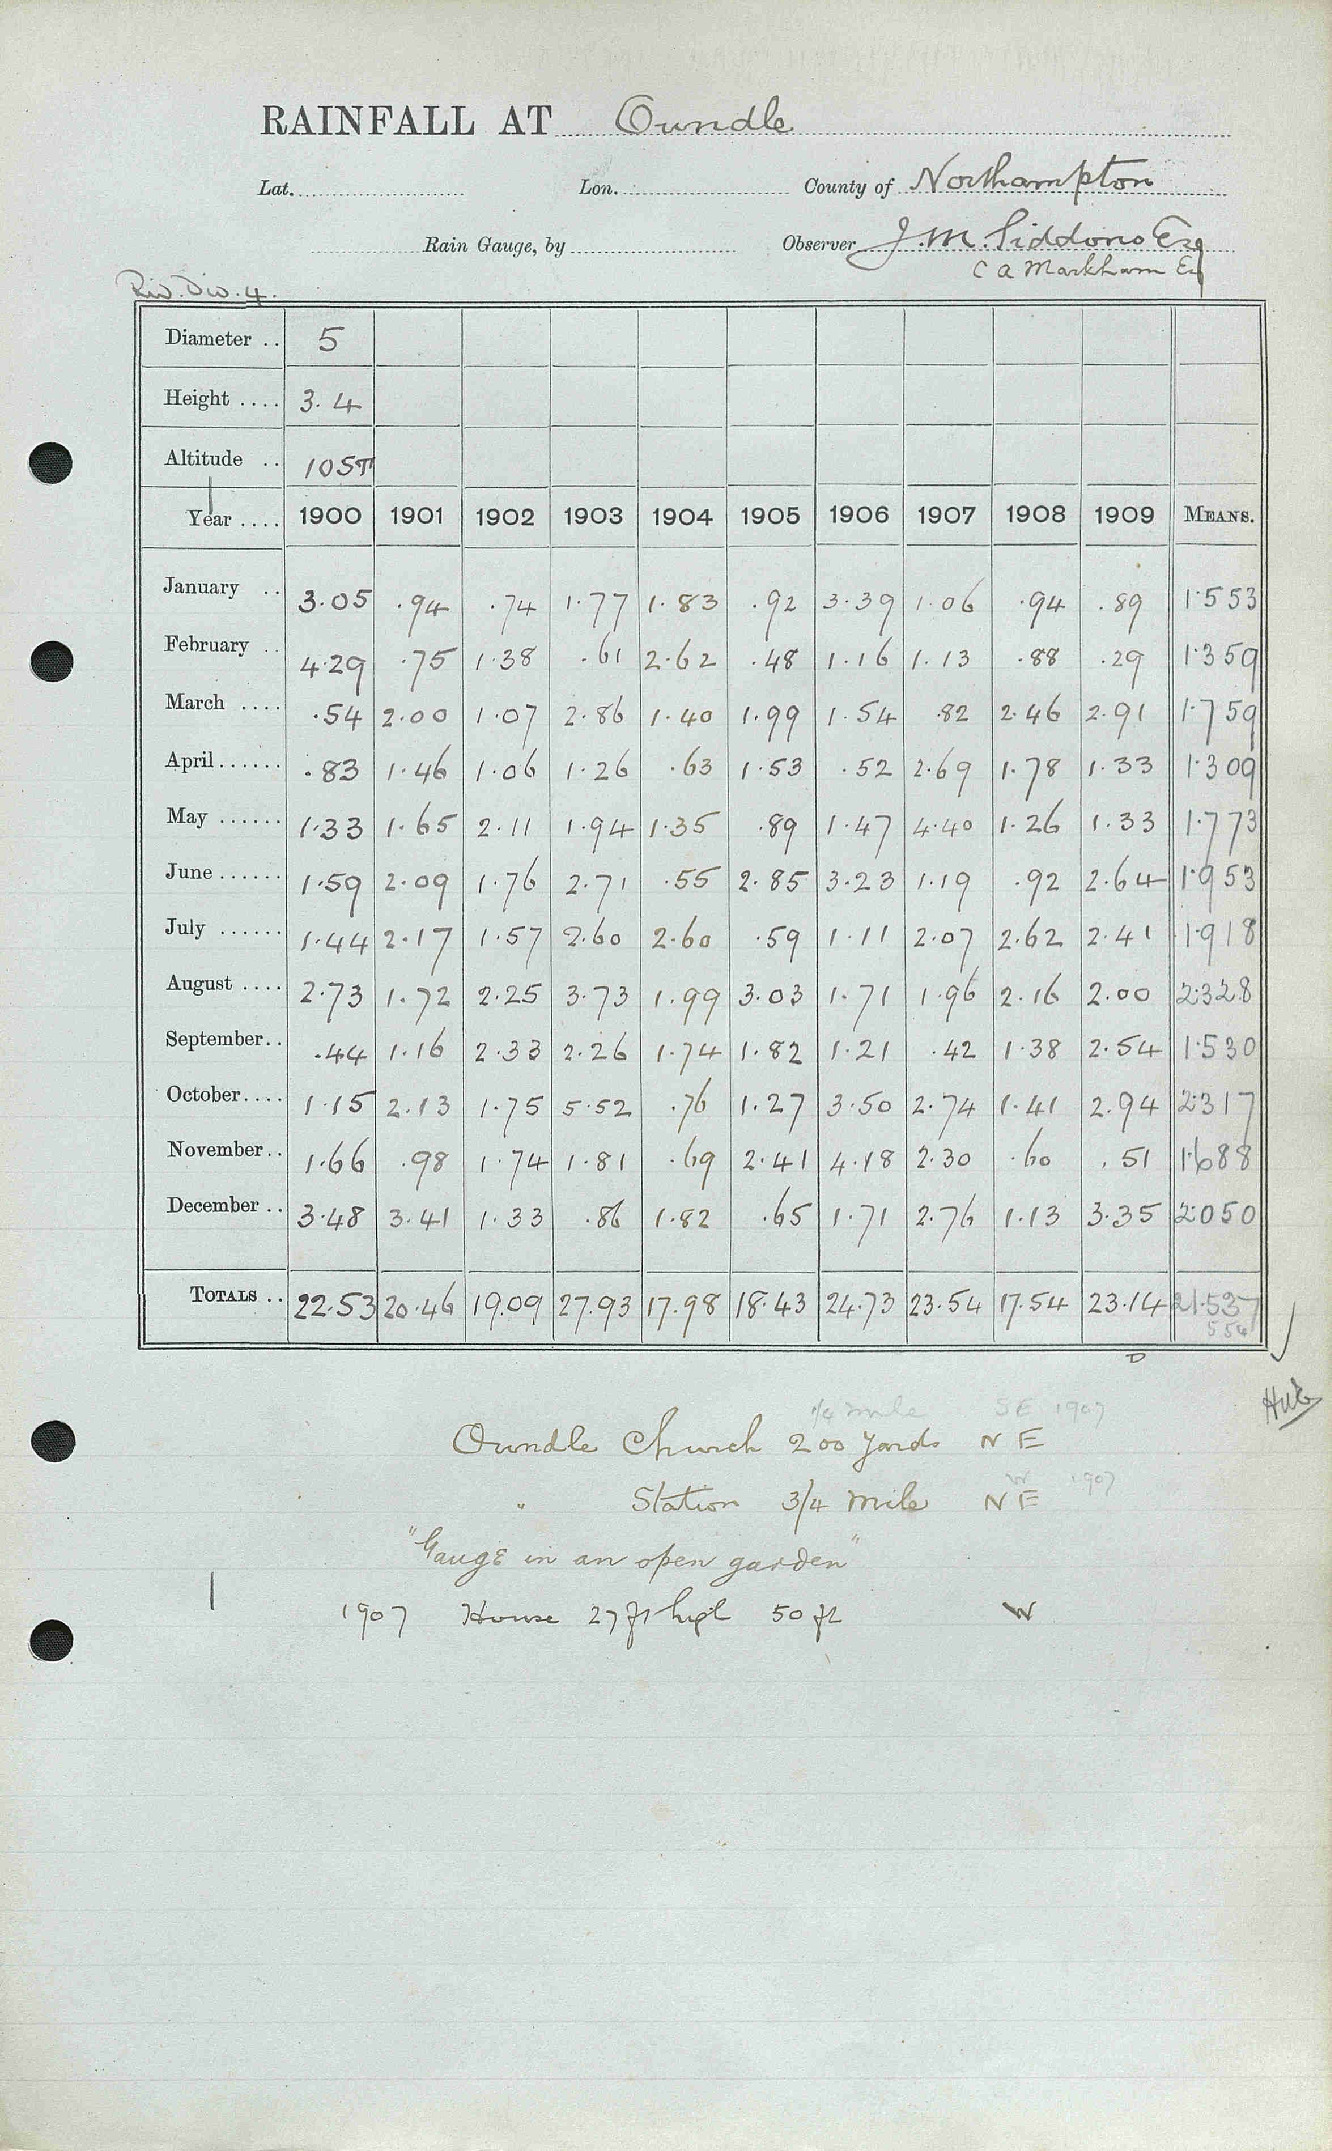 RAINFALL AT Oundle
Lat. Lon. County of Northampton
Rain Gauge, by Observer J. M. Siddons Esq
C A Markham Esq
Riv. Div. 4.
Diameter .. 5
Height .... 3.4
Altitude .. 105T
Year .... 1900 1901 1902 1903 1904 1905 1906 1907 1908 1909 MEANS.
January .. 3.05 .94 .74 1.77 1.83 .92 3.39 1.06 .94 .89 1.553
February .. 4.29 .75 1.38 .61 2.62 .48 1.16 1.13 .88 .29 1.359
March .... .54 2.00 1.07 2.86 1.40 1.99 1.54 .82 2.46 2.91 1.759
April...... .83 1.46 1.06 1.26 .63 1.53 .52 2.69 1.78 1.33 1.309
May ...... 1.33 1.65 2.11 1.94 1.35 .89 1.47 4.40 1.26 1.33 1.773
June ...... 1.59 2.09 1.76 2.71 .55 2.85 3.23 1.19 .92 2.64 1.953
July ...... 1.44 2.17 1.57 2.60 2.60 .59 1.11 2.07 2.62 2.41 1.918
August .... 2.73 1.72 2.25 3.73 1.99 3.03 1.71 1.96 2.16 2.00 2.328
September.. .44 1.16 2.33 2.26 1.74 1.82 1.21 .42 1.38 2.54 1.530
October.... 1.15 2.13 1.75 5.52 .76 1.27 3.50 2.74 1.41 2.94 2.317
November.. 1.66 .98 1.74 1.81 .69 2.41 4.18 2.30 .60 .51 1.688
December .. 3.48 3.41 1.33 .86 1.82 .65 1.71 2.76 1.13 3.35 2.050
TOTALS .. 22.53 20.46 19.09 27.93 17.98 18.43 24.73 23.54 17.54 23.14 21.537
554
D
1/4 mile SE 1907
Oundle Church 200 yards N E
W 1907
" Station 3/4 mile N E
"Gauge in an open garden"
1907 House 27 ft high 50 ft W